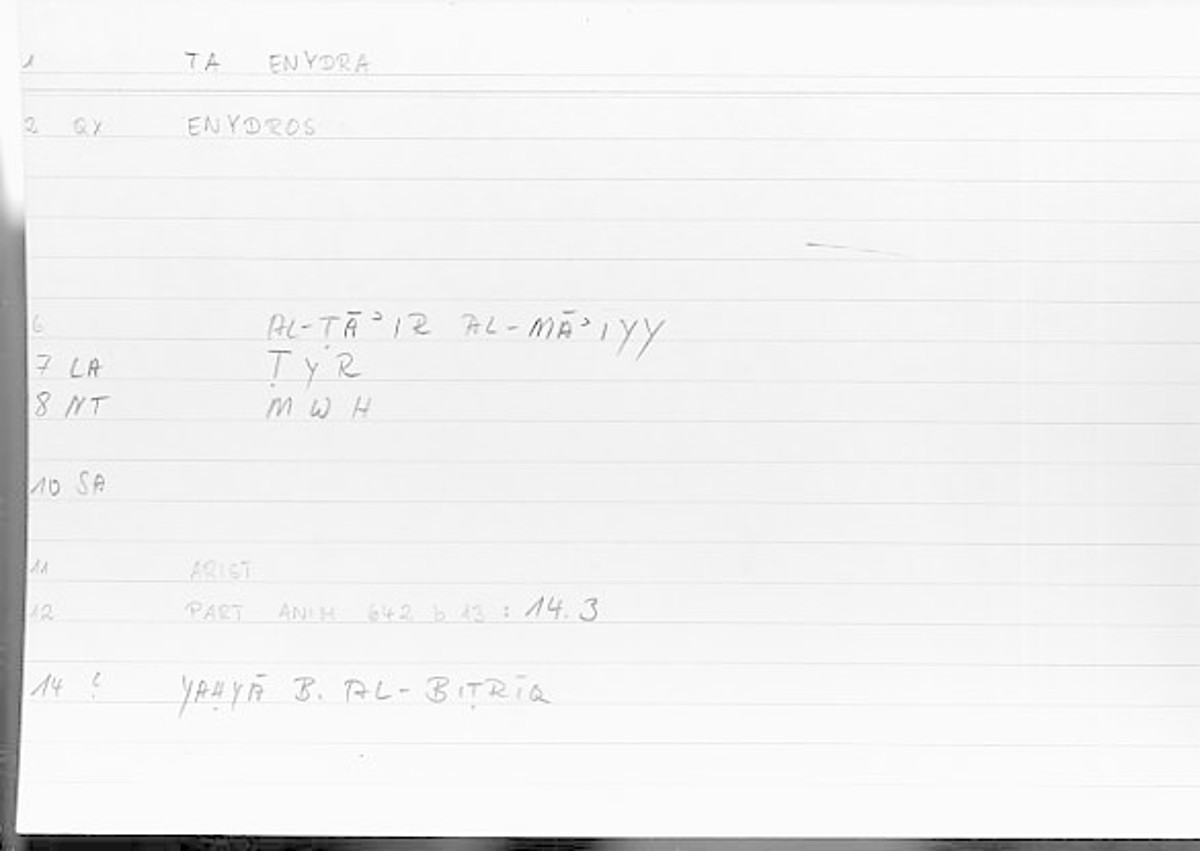 1 TA ENYDRA
2 QY ENYDROS
6 AL-ṬĀʾIR AL-MĀʾIYY
7 LA ṬYR
8 NT MWH
10 SA
11 ARIST
12 PART ANIM 642 b 13 : 14.3
14 ! YAḤYĀ B. AL-BIṬRĪQ